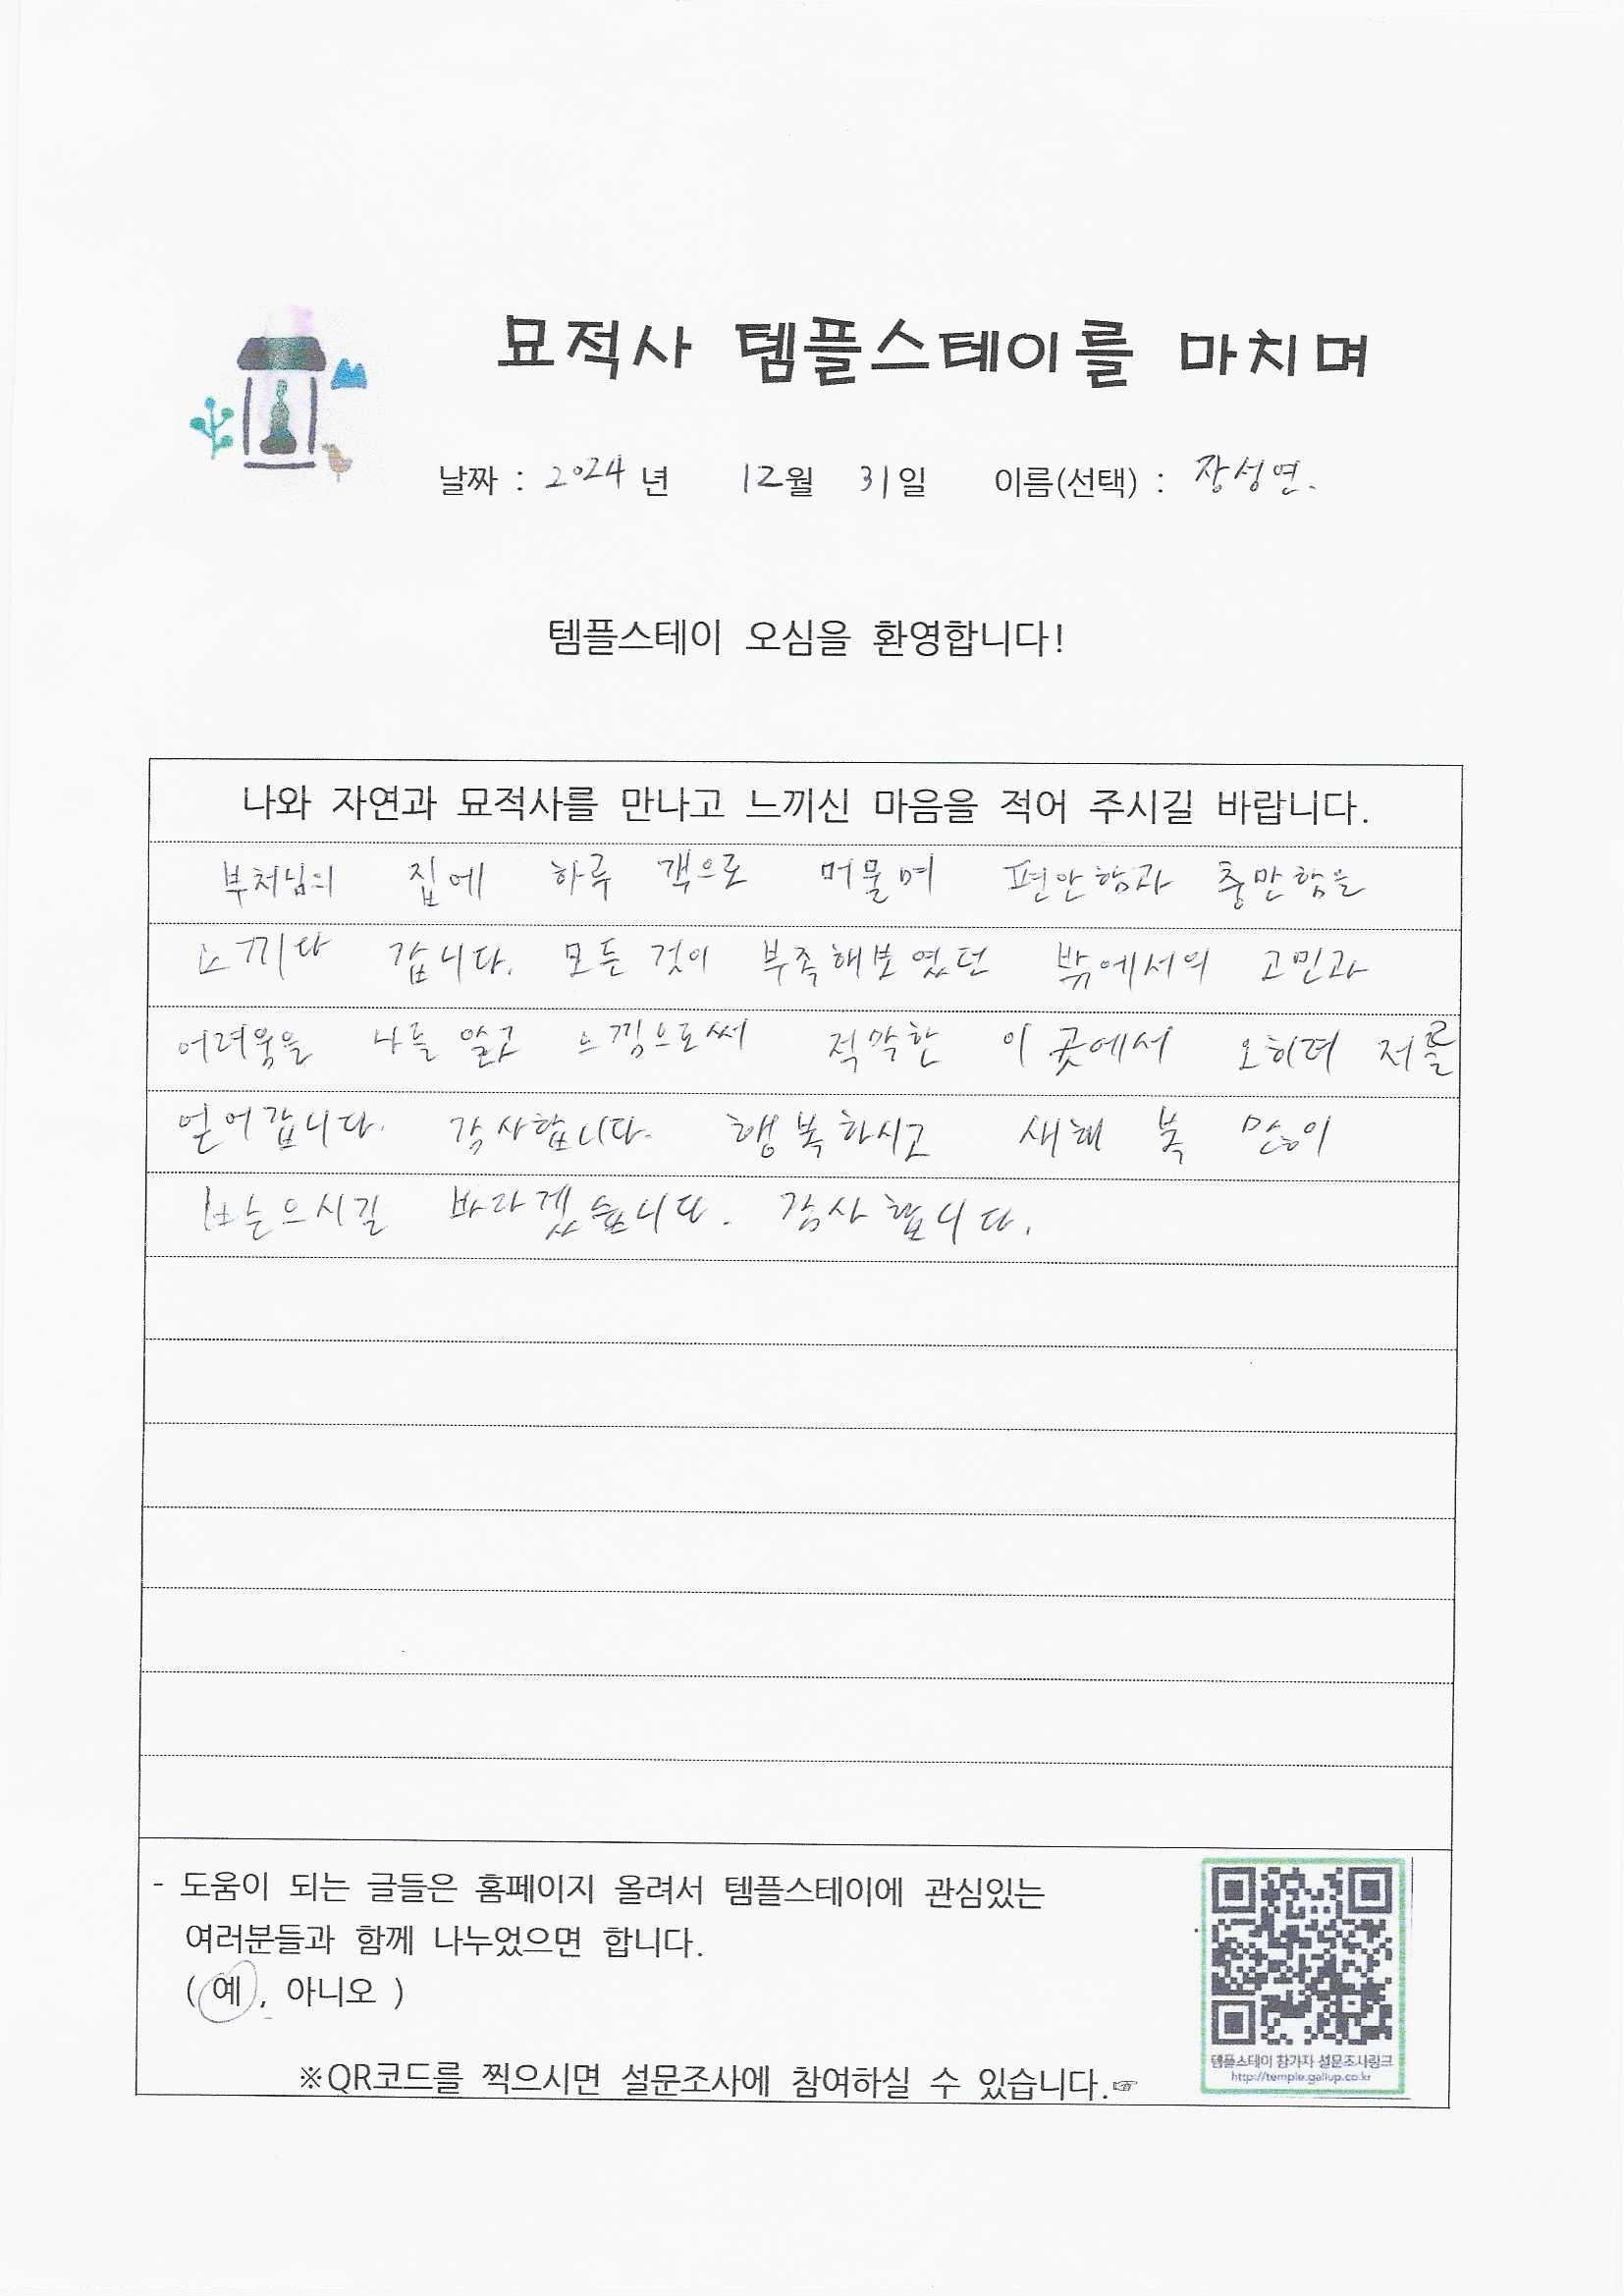 묘적사 템플스테이를 마치며
날짜 : 2024 년 12월 31일 이름(선택) : 장성연.
템플스테이 오심을 환영합니다!
나와 자연과 묘적사를 만나고 느끼신 마음을 적어 주시길 바랍니다.
부처님의 집에 하루 객으로 머물며 편안함과 충만함을
느끼다 갑니다. 모든 것이 부족해보였던 밖에서의 고민과
어려움을 나를 알고 느낌으로써 적막한 이 곳에서 오히려 저를
얻어갑니다. 감사합니다. 행복하시고 새해 복 많이
받으시길 바라겠습니다. 감사합니다.
- 도움이 되는 글들은 홈페이지 올려서 템플스테이에 관심있는
여러분들과 함께 나누었으면 합니다.
( 예 , 아니오 )
※QR코드를 찍으시면 설문조사에 참여하실 수 있습니다.☞
템플스테이 참가자 설문조사링크
http://temple.gallup.co.kr